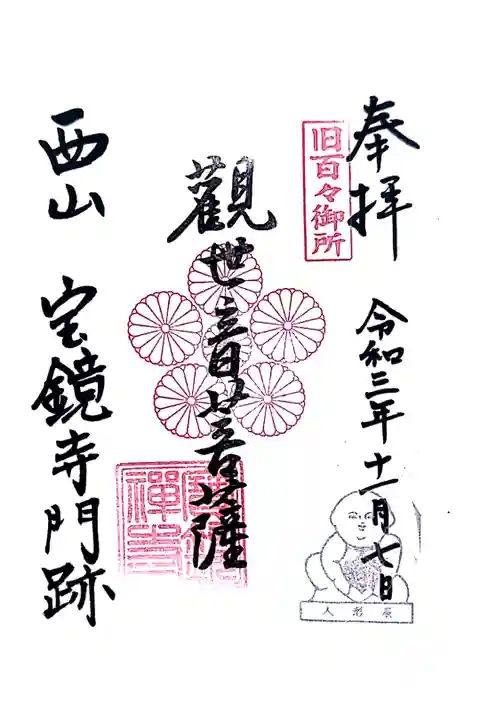 奉拝
旧百々御所
令和三年十一月七日
觀世音菩薩
西山 宝鏡寺門跡